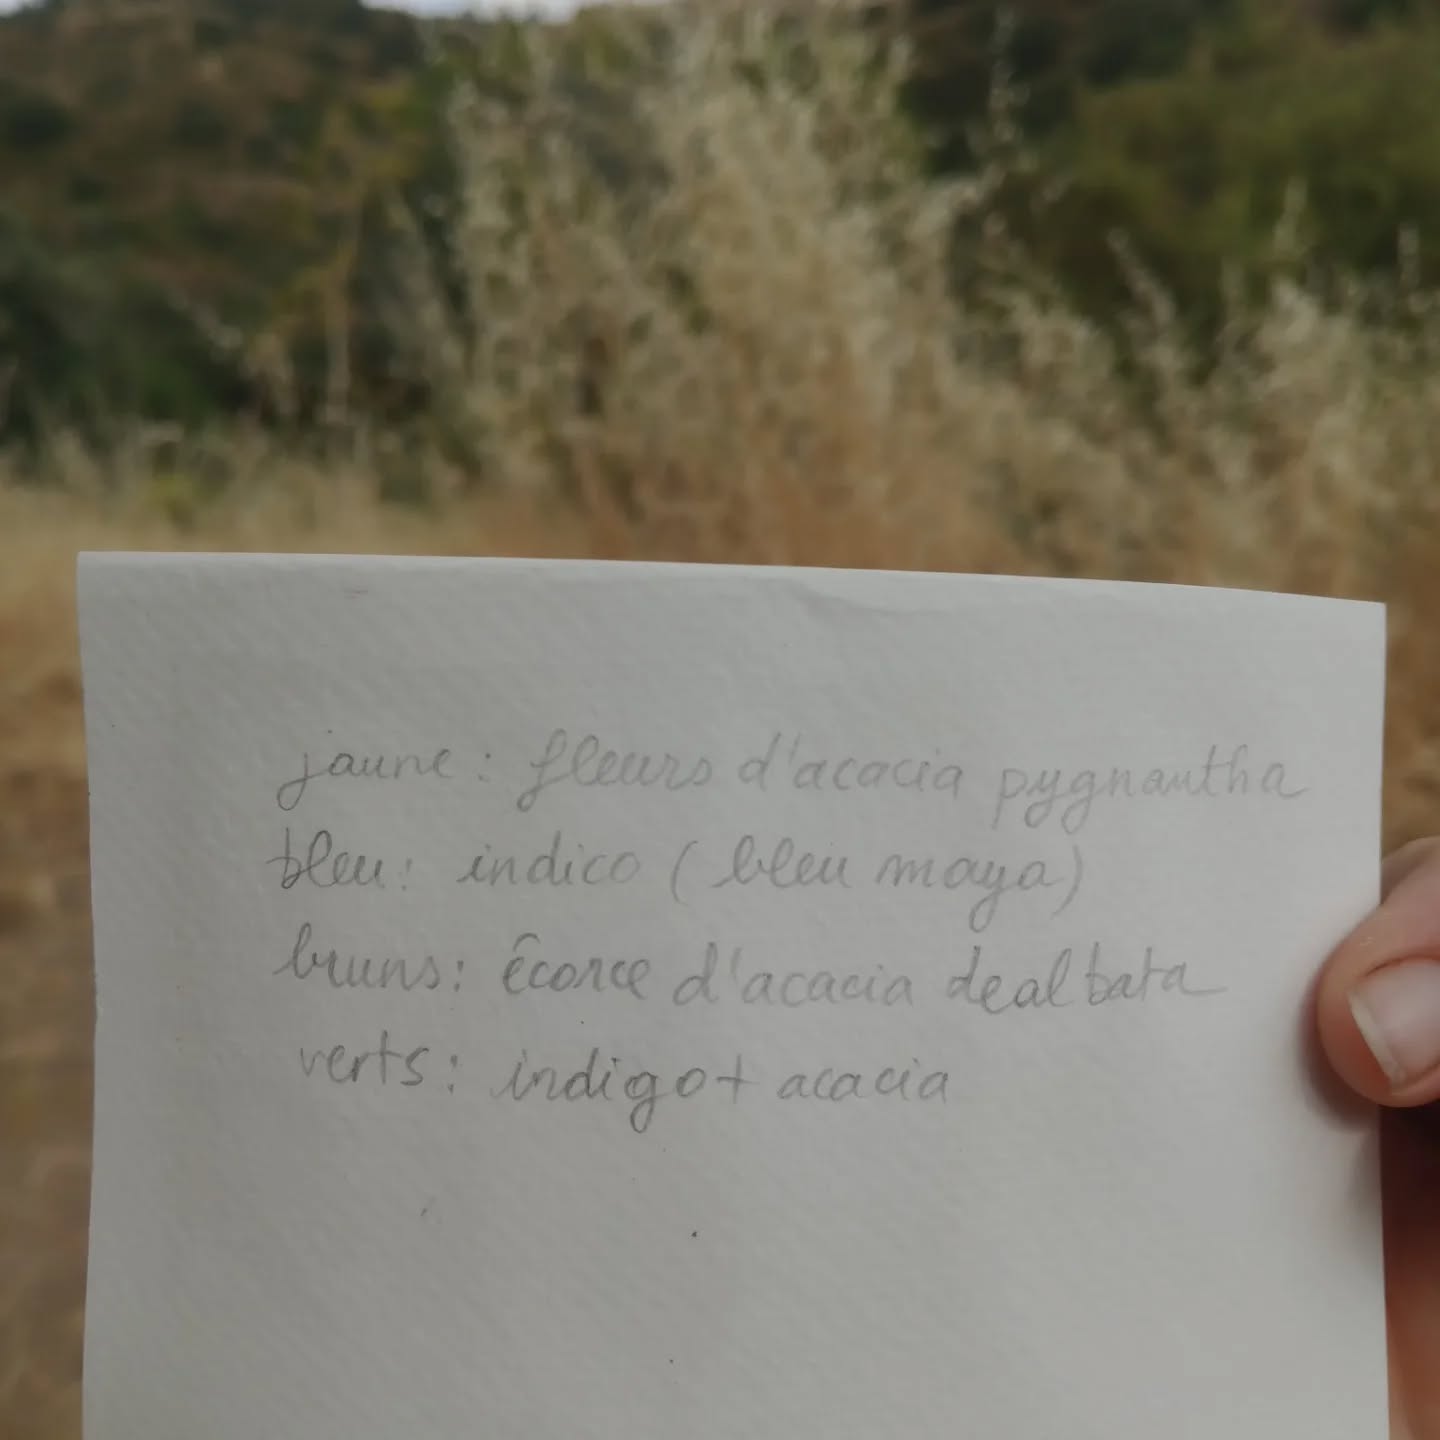 jaune : fleurs d'acacia pygnantha
bleu : indico (bleu maya)
bruns : êcorce d'acacia dealbata
verts : indigo + acacia